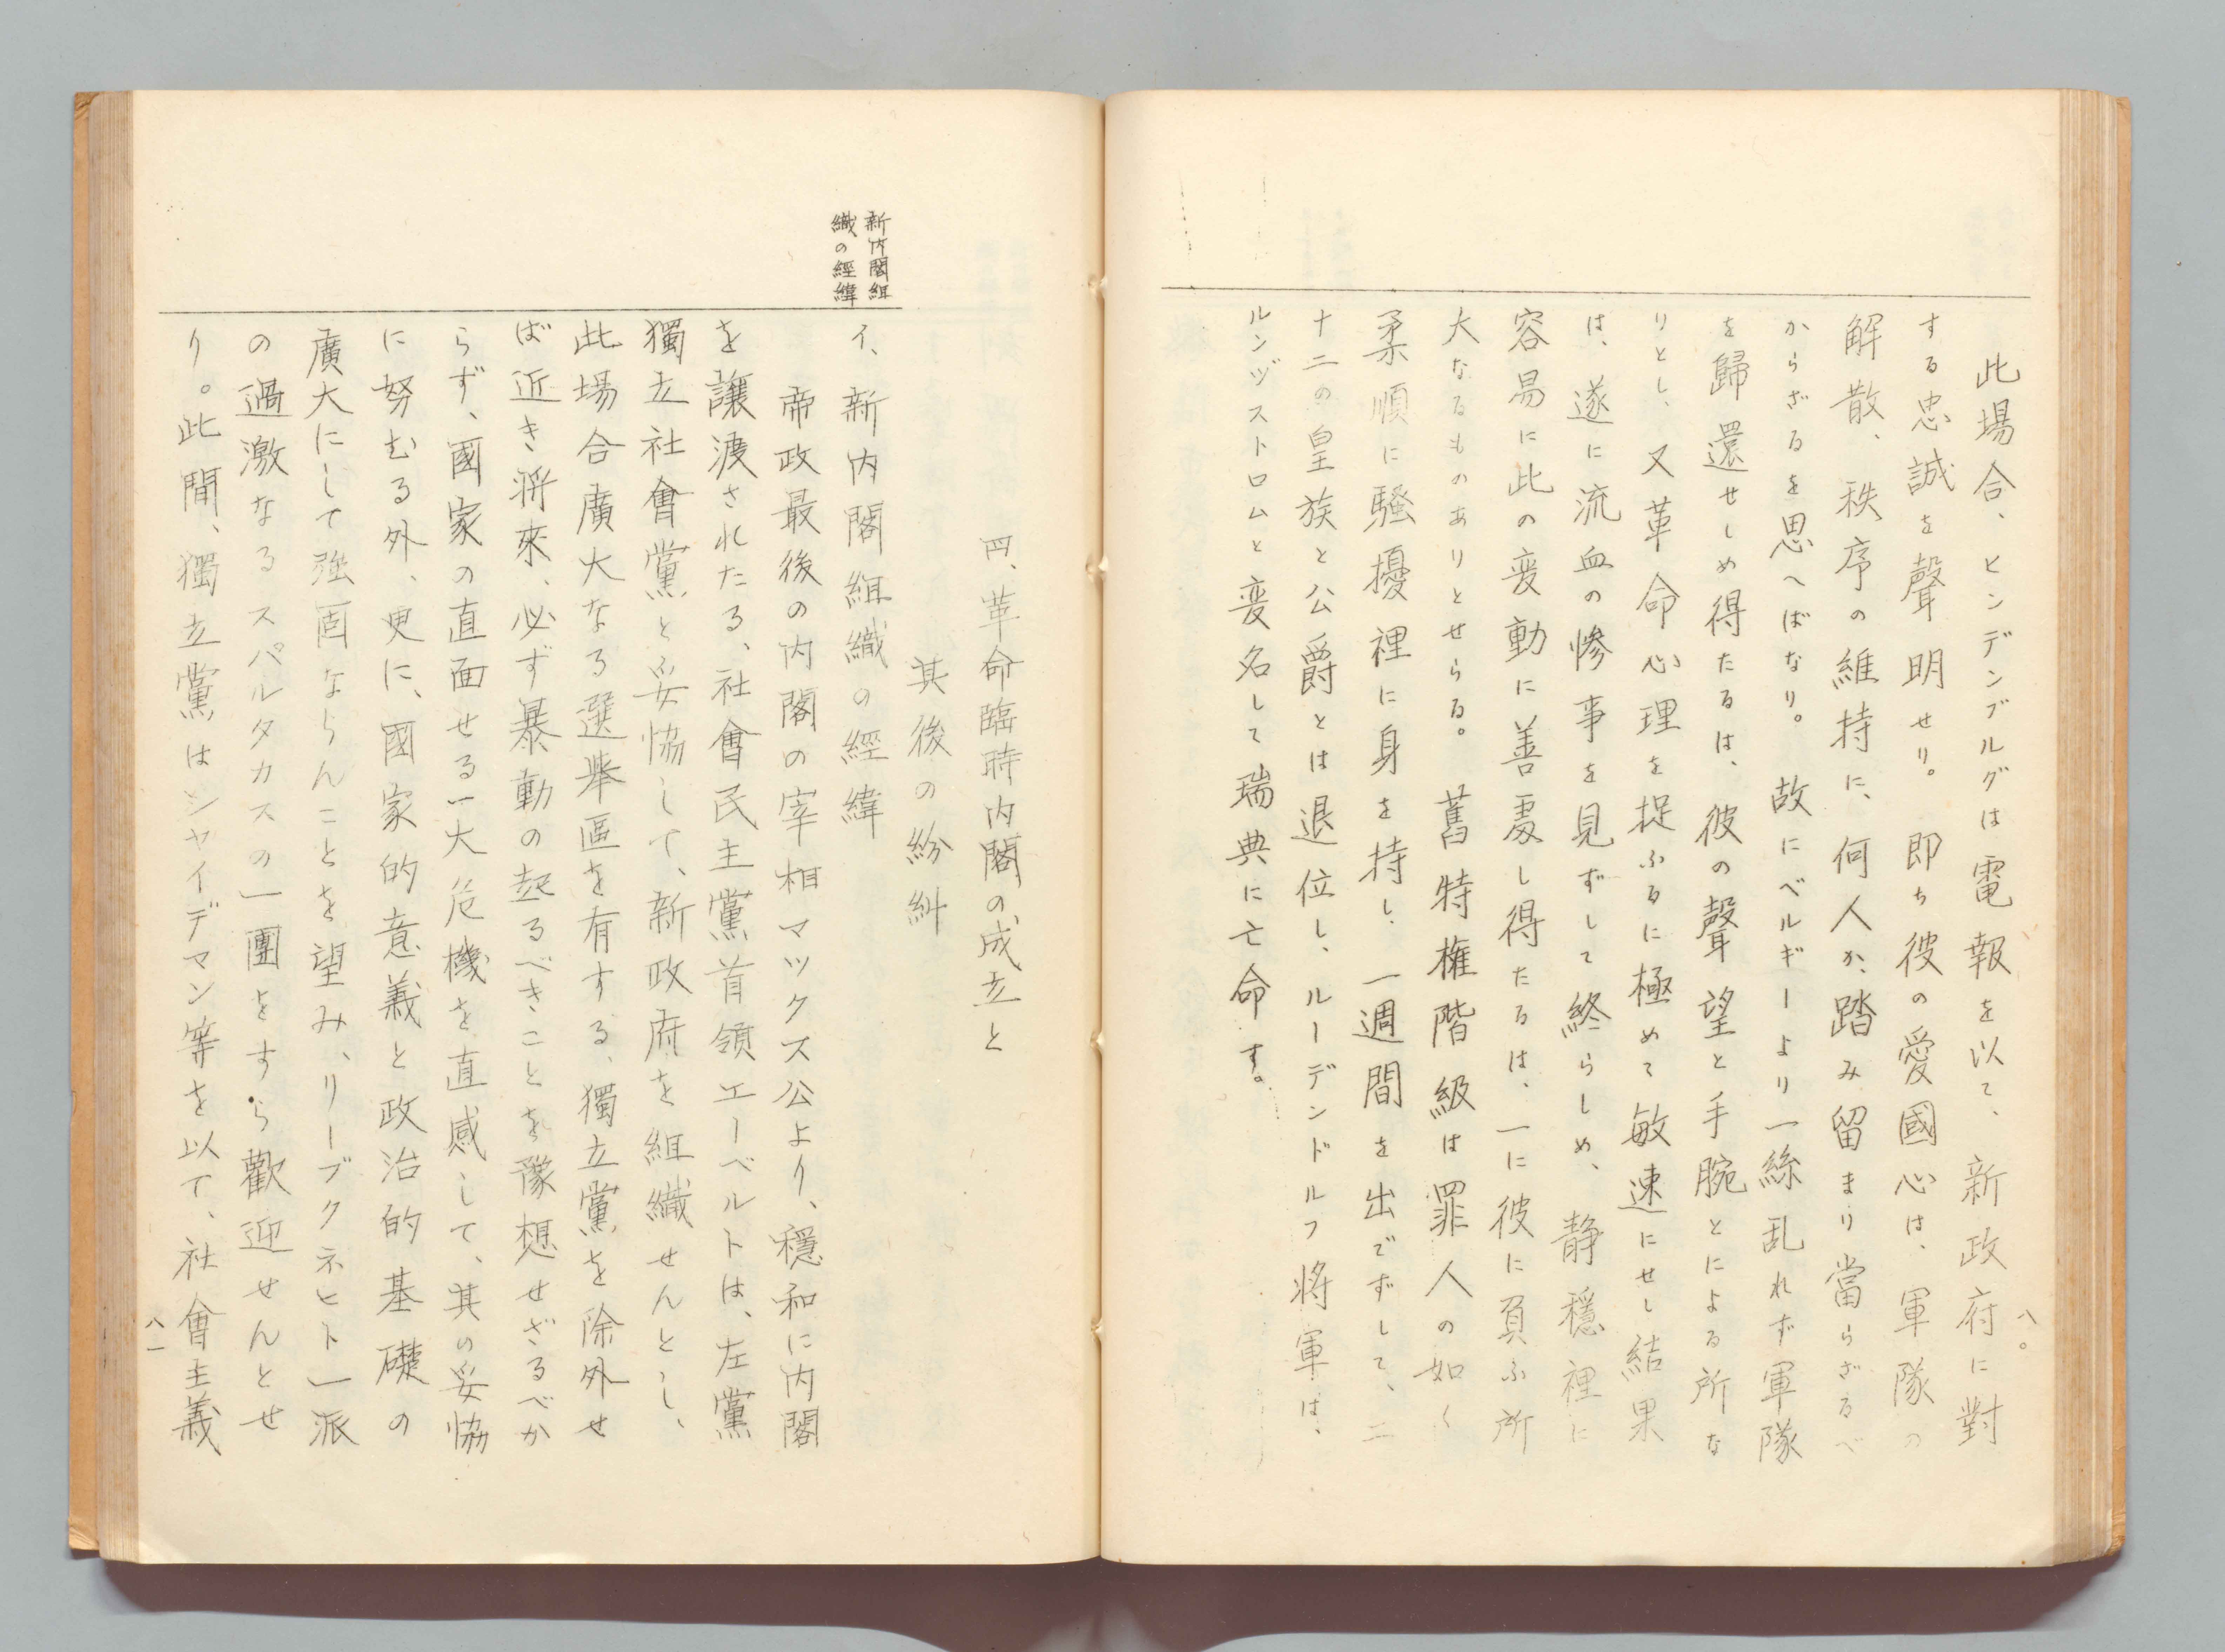 八〇
此場合、ヒンデンブルグは電報を以て、新政府に對
する忠誠を聲明せり。即ち彼の愛國心は、軍隊の
解散、秩序の維持に、何人か踏み留まり當らざるべ
からざるを思へばなり。故にベルギーより一絲乱れず軍隊
を歸還せしめ得たるは、彼の聲望と手腕とによる所な
りとし、又革命心理を捉ふるに極めて敏速にせし結果
は、遂に流血の惨事を見ずして終らしめ、静穏裡に
容易に此の変動に善處し得たるは、一に彼に負ふ所
大なるものありとせらる。舊特権階級は罪人の如く
柔順に騒擾裡に身を持し、一週間を出でずして、二
十二の皇族と公爵とは退位し、ルーデンドルフ将軍は、
ルンヅストロムと変名して瑞典に亡命す。
四、革命臨時内閣の成立と
其後の紛糾
新内閣組
織の經緯
イ、新内閣組織の經緯
帝政最後の内閣の宰相マックス公より、穏和に内閣
を譲渡されたる、社會民主黨首領エーベルトは、左黨
獨立社會黨と妥協して、新政府を組織せんとし、
此場合廣大なる選挙區を有する、獨立黨を除外せ
ば近き将來、必ず暴動の起るべきことを豫想せざるべか
らず、國家の直面せる一大危機を直感して、其の妥協
に努むる外、更に、國家的意義と政治的基礎の
廣大にして強固ならんことを望み、リーブクネヒト」派
の過激なるスパルタカスの一團をすら歡迎せんとせ
り。此間、獨立黨はシャイデマン等を以て、社會主義
八一